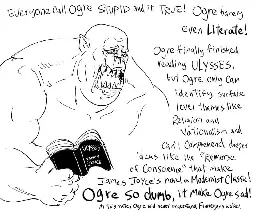 Everyone call Ogre STUPID and it TRUE! Ogre barely
even Literate!
Ogre finally finished
reading ULYSSES,
but Ogre only can
identify surface
level themes like
Religion and
Nationalism and
Can't Comprehend deeper
ones like the "Remorse
of Conscience" that make
James Joyce's novel a Modernist Classic!
Ogre so dumb, it make Ogre sad!
Ogre will never understand Finnegans Wake!
ULYSSES